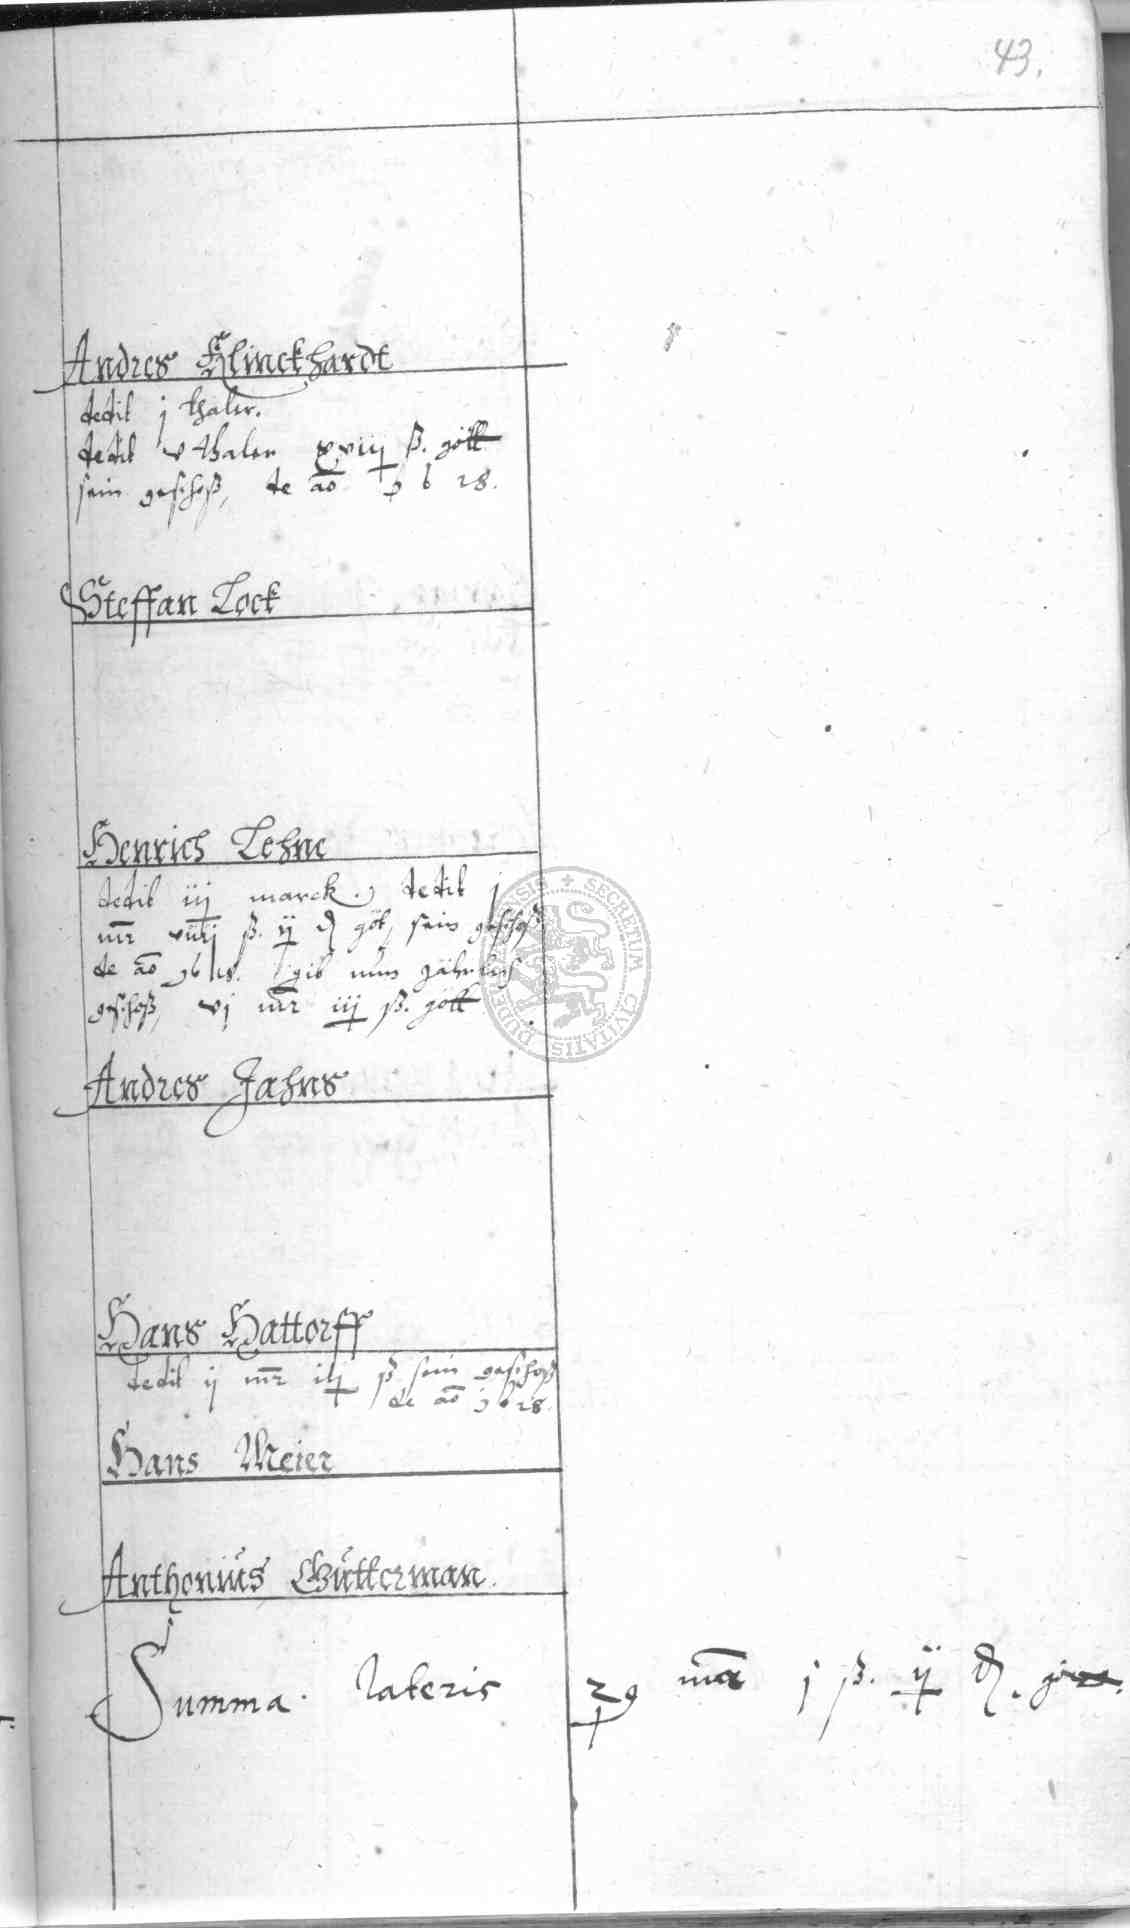 43.
Andres Klinckhardt
dedit j thaler.
dedit v thaler xviij ß. gött
sein geschoß, de ao 1628.
Steffan Lock
Henrich Lehne
dedit iij marck. dedit j
mr viiij ß. ij d göt, sein geschoß
de ao 1628. gib nun jährlich
geschoß, vj mr iij ß. gött
Andres Jahns
Hans Hattorff
dedit ij mr iij ß sein geschoß
de ao 1628.
Hans Meier
Anthonius Gütterman
Summa lateris 29 mr j ß. ij d.
SECRETUM CIVITATIS